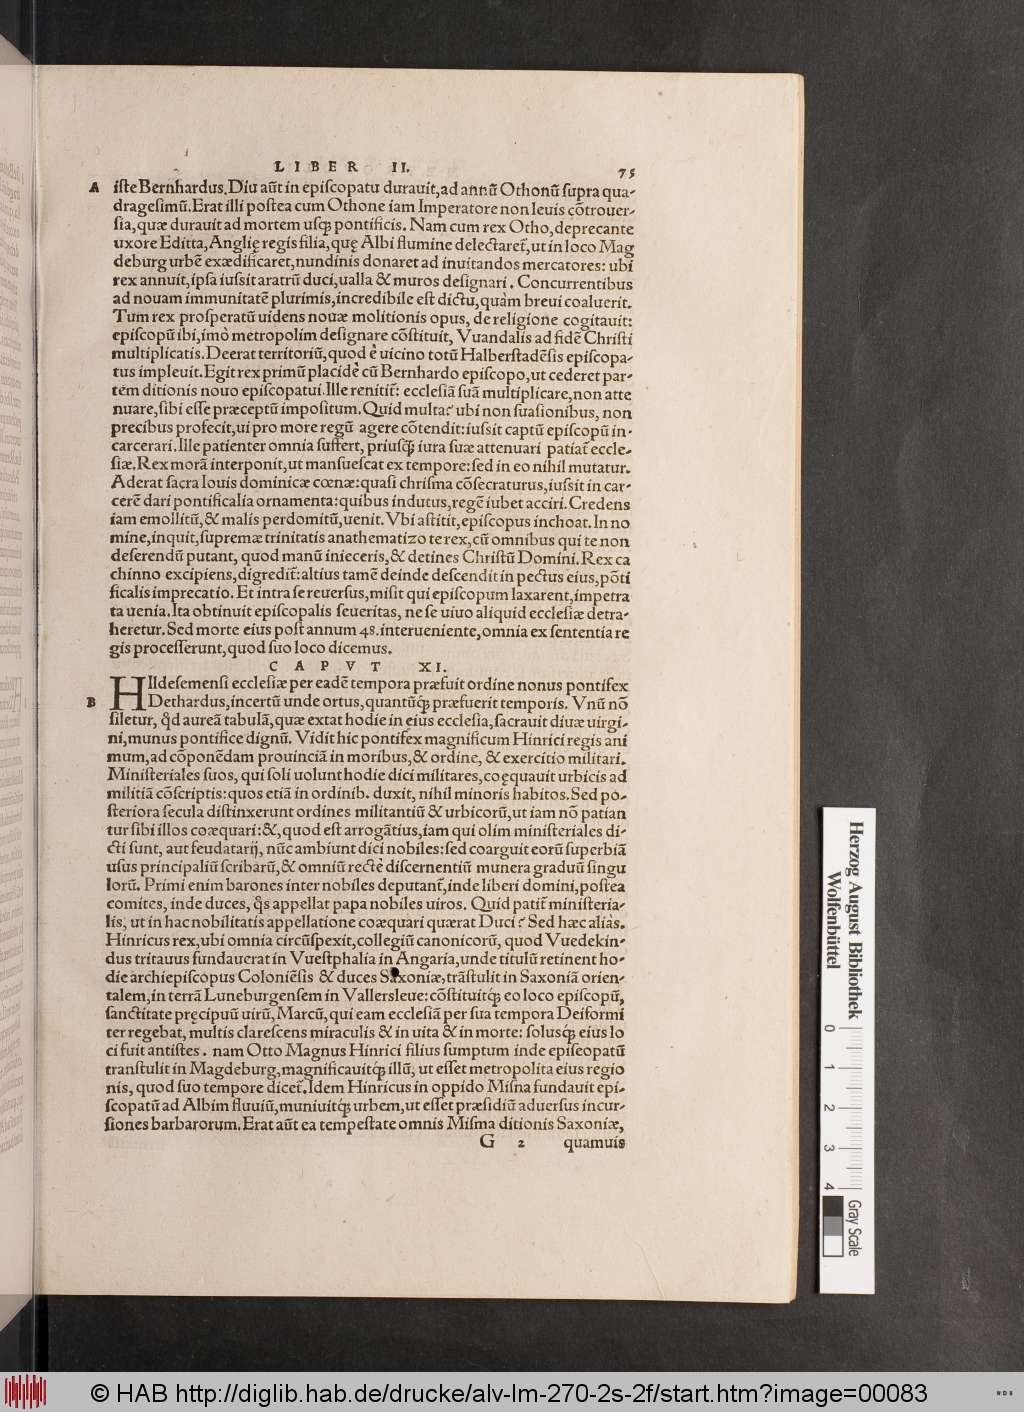 LIBER II. 75
A iſte Bernhardus. Diu aūt in epiſcopatu durauit, ad annū Othonū ſupra qua-
drageſimū. Erat illi poſtea cum Othone iam Imperatore non leuis cōtrouer-
ſia, quæ durauit ad mortem uſq; pontificis. Nam cum rex Otho, deprecante
uxore Editta, Anglię regis filia, quę Albi flumine delectaret̄, ut in loco Mag
deburg urbē exædificaret, nundinis donaret ad inuitandos mercatores: ubi
rex annuit, ipſa iuſsit aratrū duci, ualla & muros deſignari. Concurrentibus
ad nouam immunitatē plurimis, incredibile eſt dictu, quàm breui coaluerit.
Tum rex proſperatū uidens nouæ molitionis opus, de religione cogitauit:
epiſcopū ibi, imò metropolim deſignare cōſtituit, Vuandalis ad fidē Chriſti
multiplicatis. Deerat territoriū, quod è uicino totū Halberſtadēſis epiſcopa-
tus impleuit. Egit rex primū placidè cū Bernhardo epiſcopo, ut cederet par-
tem ditionis nouo epiſcopatui. Ille renitit̄: eccleſiā ſuā multiplicare, non atte
nuare, ſibi eſſe præceptū impoſitum. Quid multa? ubi non ſuaſionibus, non
precibus profecit, ui pro more regū agere cōtendit: iuſsit captū epiſcopū in-
carcerari. Ille patienter omnia ſuffert, priuſq̄; iura ſuæ attenuari patiat̄ eccle-
ſiæ. Rex morā interponit, ut manſueſcat ex tempore: ſed in eo nihil mutatur.
Aderat ſacra Iouis dominicæ cœnæ: quaſi chriſma cōſecraturus, iuſsit in car-
cerē dari pontificalia ornamenta: quibus indutus, regē iubet acciri. Credens
iam emollitū, & malis perdomitū, uenit. Vbi aſtitit, epiſcopus inchoat. In no
mine, inquit, ſupremæ trinitatis anathematizo te rex, cū omnibus qui te non
deferendū putant, quod manū inieceris, & detines Chriſtū Domini. Rex ca
chinno excipiens, digredit̄: altius tamē deinde deſcendit in pectus eius, pōti
ficalis imprecatio. Et intra ſe reuerſus, miſit qui epiſcopum laxarent, impetra
ta uenia. Ita obtinuit epiſcopalis ſeueritas, ne ſe uiuo aliquid eccleſiæ detra-
heretur. Sed morte eius poſt annum 48. interueniente, omnia ex ſententia re
gis proceſſerunt, quod ſuo loco dicemus.
CAPVT XI.
HIldeſemenſi eccleſiæ per eadē tempora præfuit ordine nonus pontifex
B Dethardus, incertū unde ortus, quantūq̄; præfuerit temporis. Vnū nō
ſiletur, q̄d aureā tabulā, quæ extat hodie in eius eccleſia, ſacrauit diuæ uirgi-
ni, munus pontifice dignū. Vidit hic pontifex magnificum Hinrici regis ani
mum, ad cōponēdam prouinciā in moribus, & ordine, & exercitio militari.
Miniſteriales ſuos, qui ſoli uolunt hodie dici militares, coęquauit urbicis ad
militiā cōſcriptis: quos etiā in ordinib. duxit, nihil minoris habitos. Sed po-
ſteriora ſecula diſtinxerunt ordines militantiū & urbicorū, ut iam nō patian
tur ſibi illos coæquari: &, quod eſt arrogātius, iam qui olim miniſteriales di-
cti ſunt, aut feudatarij, nūc ambiunt dici nobiles: ſed coarguit eorū ſuperbiā
uſus principaliū ſcribarū, & omniū rectè diſcernentiū munera graduū ſingu
lorū. Primi enim barones inter nobiles deputant̄, inde liberi domini, poſtea
comites, inde duces, q̄s appellat papa nobiles uiros. Quid patit̄ miniſteria-
lis, ut in hac nobilitatis appellatione coæquari quærat Duci? Sed hæc aliàs.
Hinricus rex, ubi omnia circūſpexit, collegiū canonicorū, quod Vuedekin-
dus tritauus fundauerat in Vueſtphalia in Angaria, unde titulū retinent ho-
die archiepiſcopus Coloniēſis & duces Saxoniæ, trāſtulit in Saxoniā orien-
talem, in terrā Luneburgenſem in Vallersleue: cōſtituitq̄; eo loco epiſcopū,
ſanctitate pręcipuū uirū, Marcū, qui eam eccleſiā per ſua tempora Deiformi
ter regebat, multis clareſcens miraculis & in uita & in morte: ſoluſq̄; eius lo
ci fuit antiſtes. nam Otto Magnus Hinrici filius ſumptum inde epiſcopatū
tranſtulit in Magdeburg, magnificauitq̄; illū, ut eſſet metropolita eius regio
nis, quod ſuo tempore dicet̄. Idem Hinricus in oppido Miſna fundauit epi-
ſcopatū ad Albim fluuiū, muniuitq̄; urbem, ut eſſet præſidiū aduerſus incur-
ſiones barbarorum. Erat aūt ea tempeſtate omnis Miſma ditionis Saxoniæ,
G 2 quamuis
Herzog August Bibliothek
Wolfenbüttel
0 1 2 3 4
Gray Scale
© HAB http://diglib.hab.de/drucke/alv-lm-270-2s-2f/start.htm?image=00083
WDB